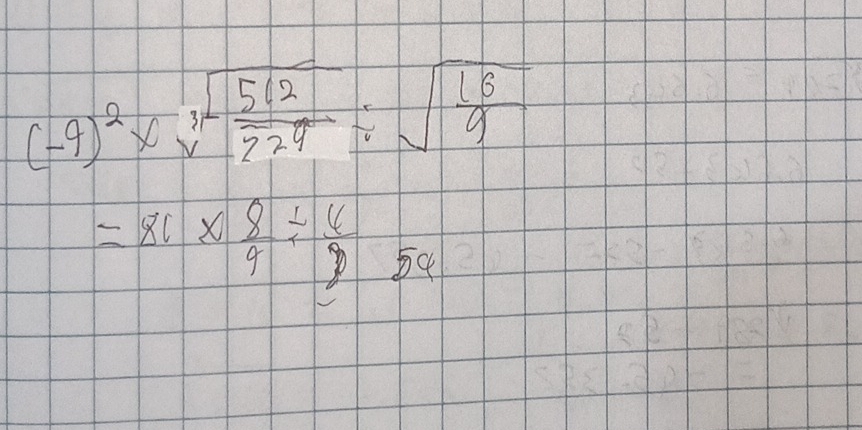 (-9)² × ∛(512/729) ÷ √(16/9)
= 81 × 8/9 ÷ 4/3 54